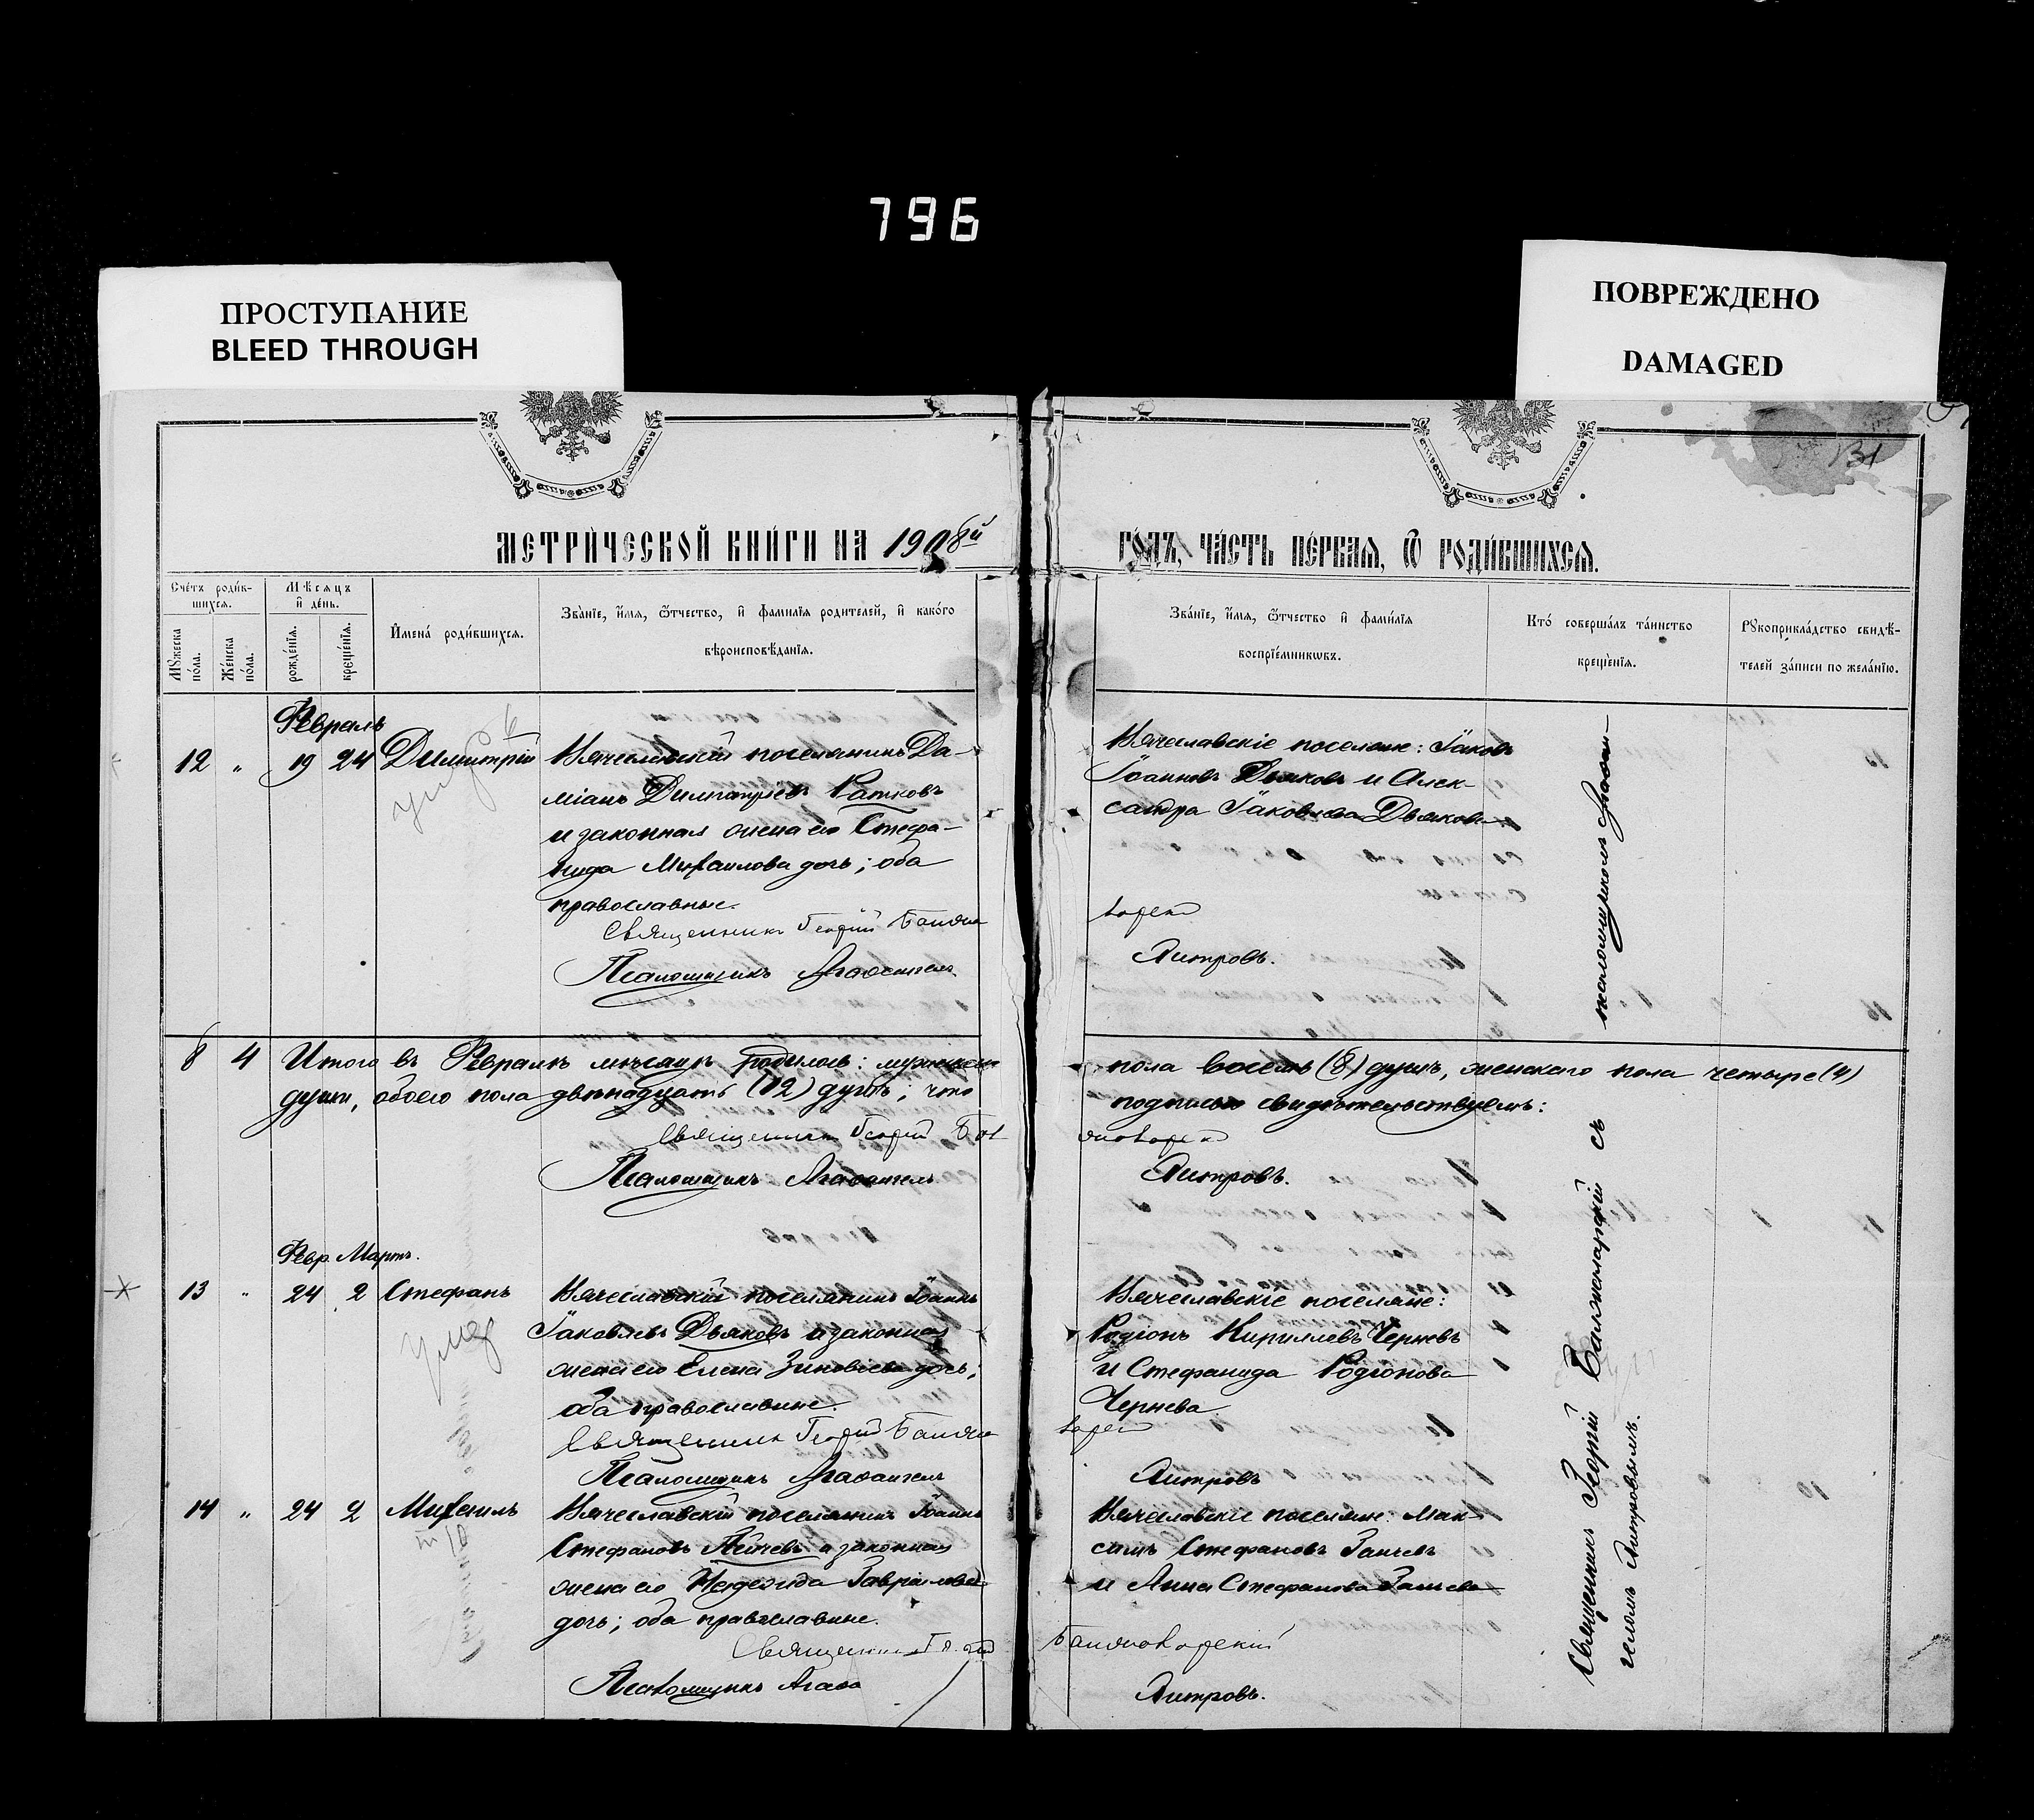 796
ПРОСТУПАНИЕ
BLEED THROUGH
ПОВРЕЖДЕНО
DAMAGED
131
МЕТРИ́ЧЕСКОЙ КНИ́ГИ НА 1908й
ГО́ДЪ, ЧА́СТЬ ПЕ́РВАЯ, Ѡ РОДИ́ВШИХСЯ.
Сче́тъ роди́в-
шихся.
Мѣ́сяцъ
и҆ де́нь.
Му́жеска
по́ла.
Же́нска
по́ла.
рожде́нїя.
креще́нїя.
И҆мена́ роди́вшихся.
Зва́нїе, и҆́мя, ѻ҆́тчество, и҆ фами́лїя родителей, и҆ како́го
вѣроисповѣ́данїя.
Зва́нїе, и҆́мя, ѻ҆́тчество и҆ фами́лїя
воспрїе́мникѡвъ.
Кто́ соверша́лъ та́инство
креще́нїя.
Рꙋкоприкла́дство свидѣ́-
телей за́писи по жела́нїю.
Февраль
12 " 19 24 Димитрій
Вячеславскій поселянинъ Да-
міанъ Димитріевъ Ратковъ
и законная жена его Стефа-
нида Михаилова дочь; оба
православные.
Священникъ Георгій
Псаломщикъ
Вячеславскіе поселяне: Іаковъ
Іоанновъ Дьяковъ и Алек-
сандра Іаковлева Дьякова
Митровъ.
8 4 Итого въ Февралѣ мѣсяцѣ родилось: мужскаго
пола восемь (8) душъ, женскаго пола четыре (4)
души, обоего пола двѣнадцать (12) душъ; что
подписью свидѣтельствуемъ:
Священникъ Георгій
Псаломщикъ
Митровъ.
Февр. Мартъ.
13 " 24 2 Стефанъ
умер
Вячеславскій поселянинъ Іоаннъ
Іаковлевъ Дьяковъ и законная
жена его Елена Зиновіева дочь;
оба православные.
Священникъ Георгій
Псаломщикъ
Вячеславскіе поселяне:
Родіонъ Кирилловъ Черневъ
и Стефанида Родіонова
Чернева.
Митровъ
14 " 24 2 Михаилъ
Вячеславскій поселянинъ Іоаннъ
Стефановъ Пейчевъ и законная
жена его Надежда Гаврилова
дочь; оба православные.
Священникъ
Псаломщикъ
Вячеславскіе поселяне: Мак-
симъ Стефановъ Ганчевъ
и Анна Стефанова Ганчева
Митровъ.
Священникъ Георгій съ
псаломщикомъ